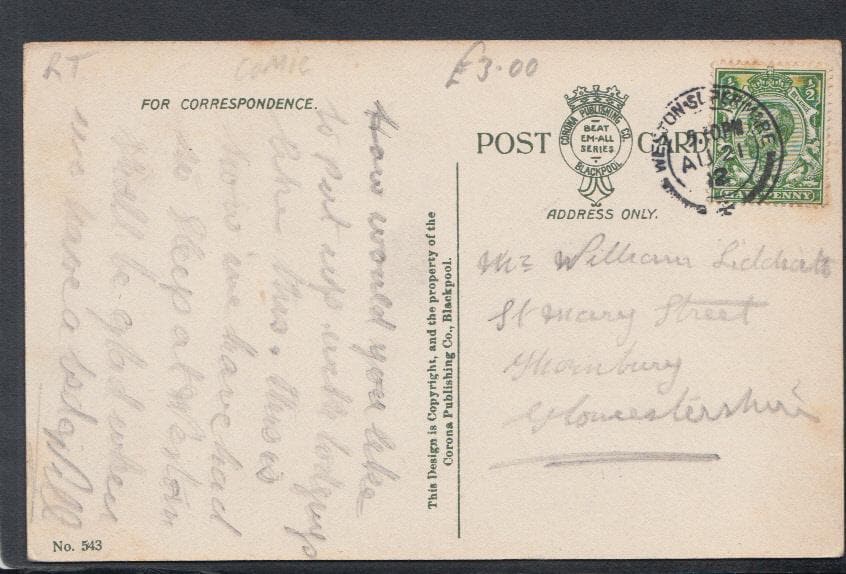 RT
COMIC
£3.00
FOR CORRESPONDENCE.
POST CARD
CORONA PUBLISHING CO.
BEAT
EM-ALL
SERIES
BLACKPOOL
WESTON-SUPER-MARE
AU 21
12
HALFPENNY
ADDRESS ONLY.
How would you like
to put up with lodgings
like this. This is
how we have had
to sleep at
shall be glad when
we have a bed
Mr William
St Mary Street
Thornbury
Gloucestershire
This Design is Copyright, and the property of the
Corona Publishing Co., Blackpool.
No. 543